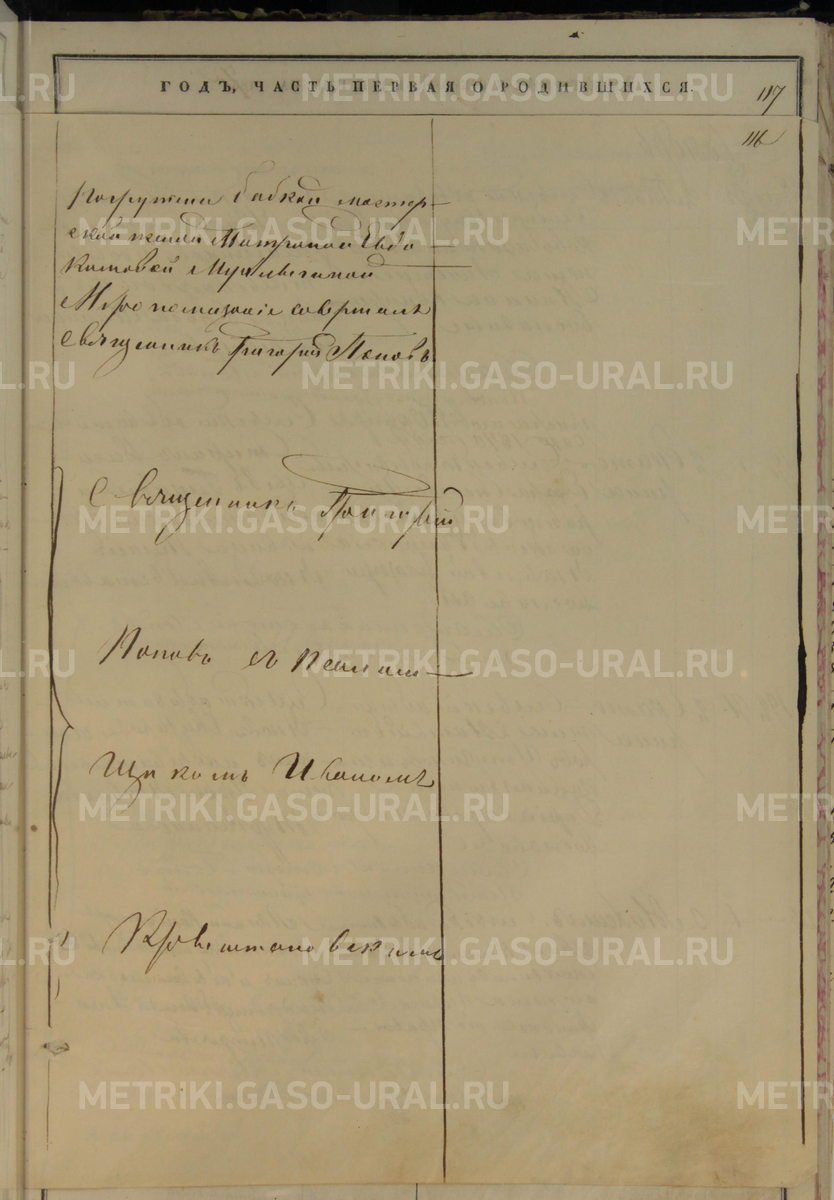 ГОДЪ, ЧАСТЬ ПЕРВАЯ О РОДИВШИХСЯ.
117
116
Погружен бабкой мастер-
ской женой Матроной Евдо
кимовой
Миропомазание совершалъ
Священникъ Григорий Поповъ
Священникъ Григорий
Поповъ съ Псалом-
щикомъ Иваномъ
METRIKI.GASO-URAL.RU